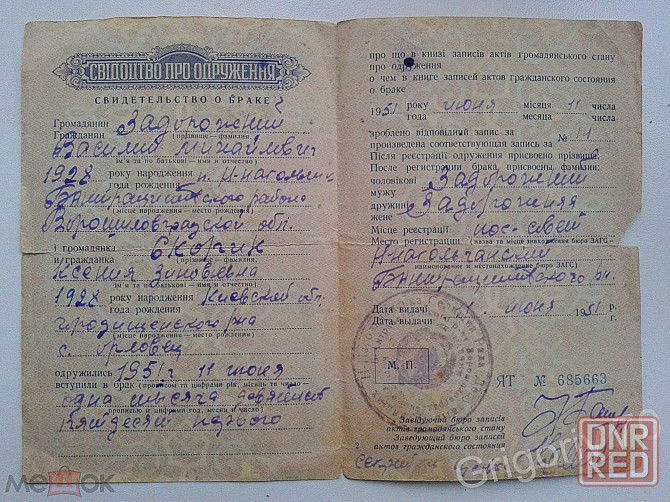 СВІДОЦТВО ПРО ОДРУЖЕННЯ
СВИДЕТЕЛЬСТВО О БРАКЕ
Громадянин Задорожний
Гражданин
(прізвище — фамилия)
Василий Михайлович
ім'я та по батькові — имя и отчество)
1928 року народження п. Н-Нагольчик
года рождения
района
(місце народження — место рождения)
Ворошиловградской обл.
і громадянка Скорик
и гражданка
(прізвище — фамилия)
Ксения Зиновьевна
ім'я та по батькові — имя и отчество)
1928 року народження Киевской обл.
года рождения
Городищенского р-на
(місце народження — место рождения)
с. Орловец
одружились 1951 г 11 июня
вступили в брак (прописом та цифрами рік, місяць та число
одна тысяча девятьсот
прописью и цифрами год, месяц и число)
пятдесят первого
про що в книзі записів актів громадянського стану
про одруження
о чем в книге записей актов гражданского состояния
о браке
1951 року июня місяця 11 числа
года месяца числа
зроблено відповідний запис за № 14
произведена соответствующая запись за
Після реєстрації одруження присвоєно прізвища:
После регистрации брака, присвоены фамилии:
чоловікові Задорожний
мужу
дружині Задорожняя
жене
Місце реєстрації пос-совет
Место регистрации (назва та місце знаходження бюро ЗАГС —
Н-Нагольчанский
наименование и местонахождение бюро ЗАГС)
Дата видачі 1. июня 1951 р.
Дата выдачи г.
М. П.
ЯТ № 685663
Завідуючий бюро записів
актів громадянського стану
Заведующий бюро записей
актов гражданского состояния
2
Мешок
Grigoriy
UNR
RED